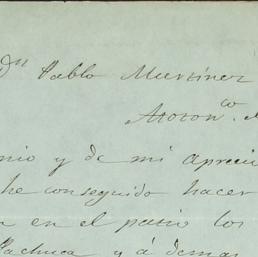 Dn Pablo Martinez
Atoton co.
mio y de mi aprecio
he conseguido hacer
en el patio los
Pachuca y á demas